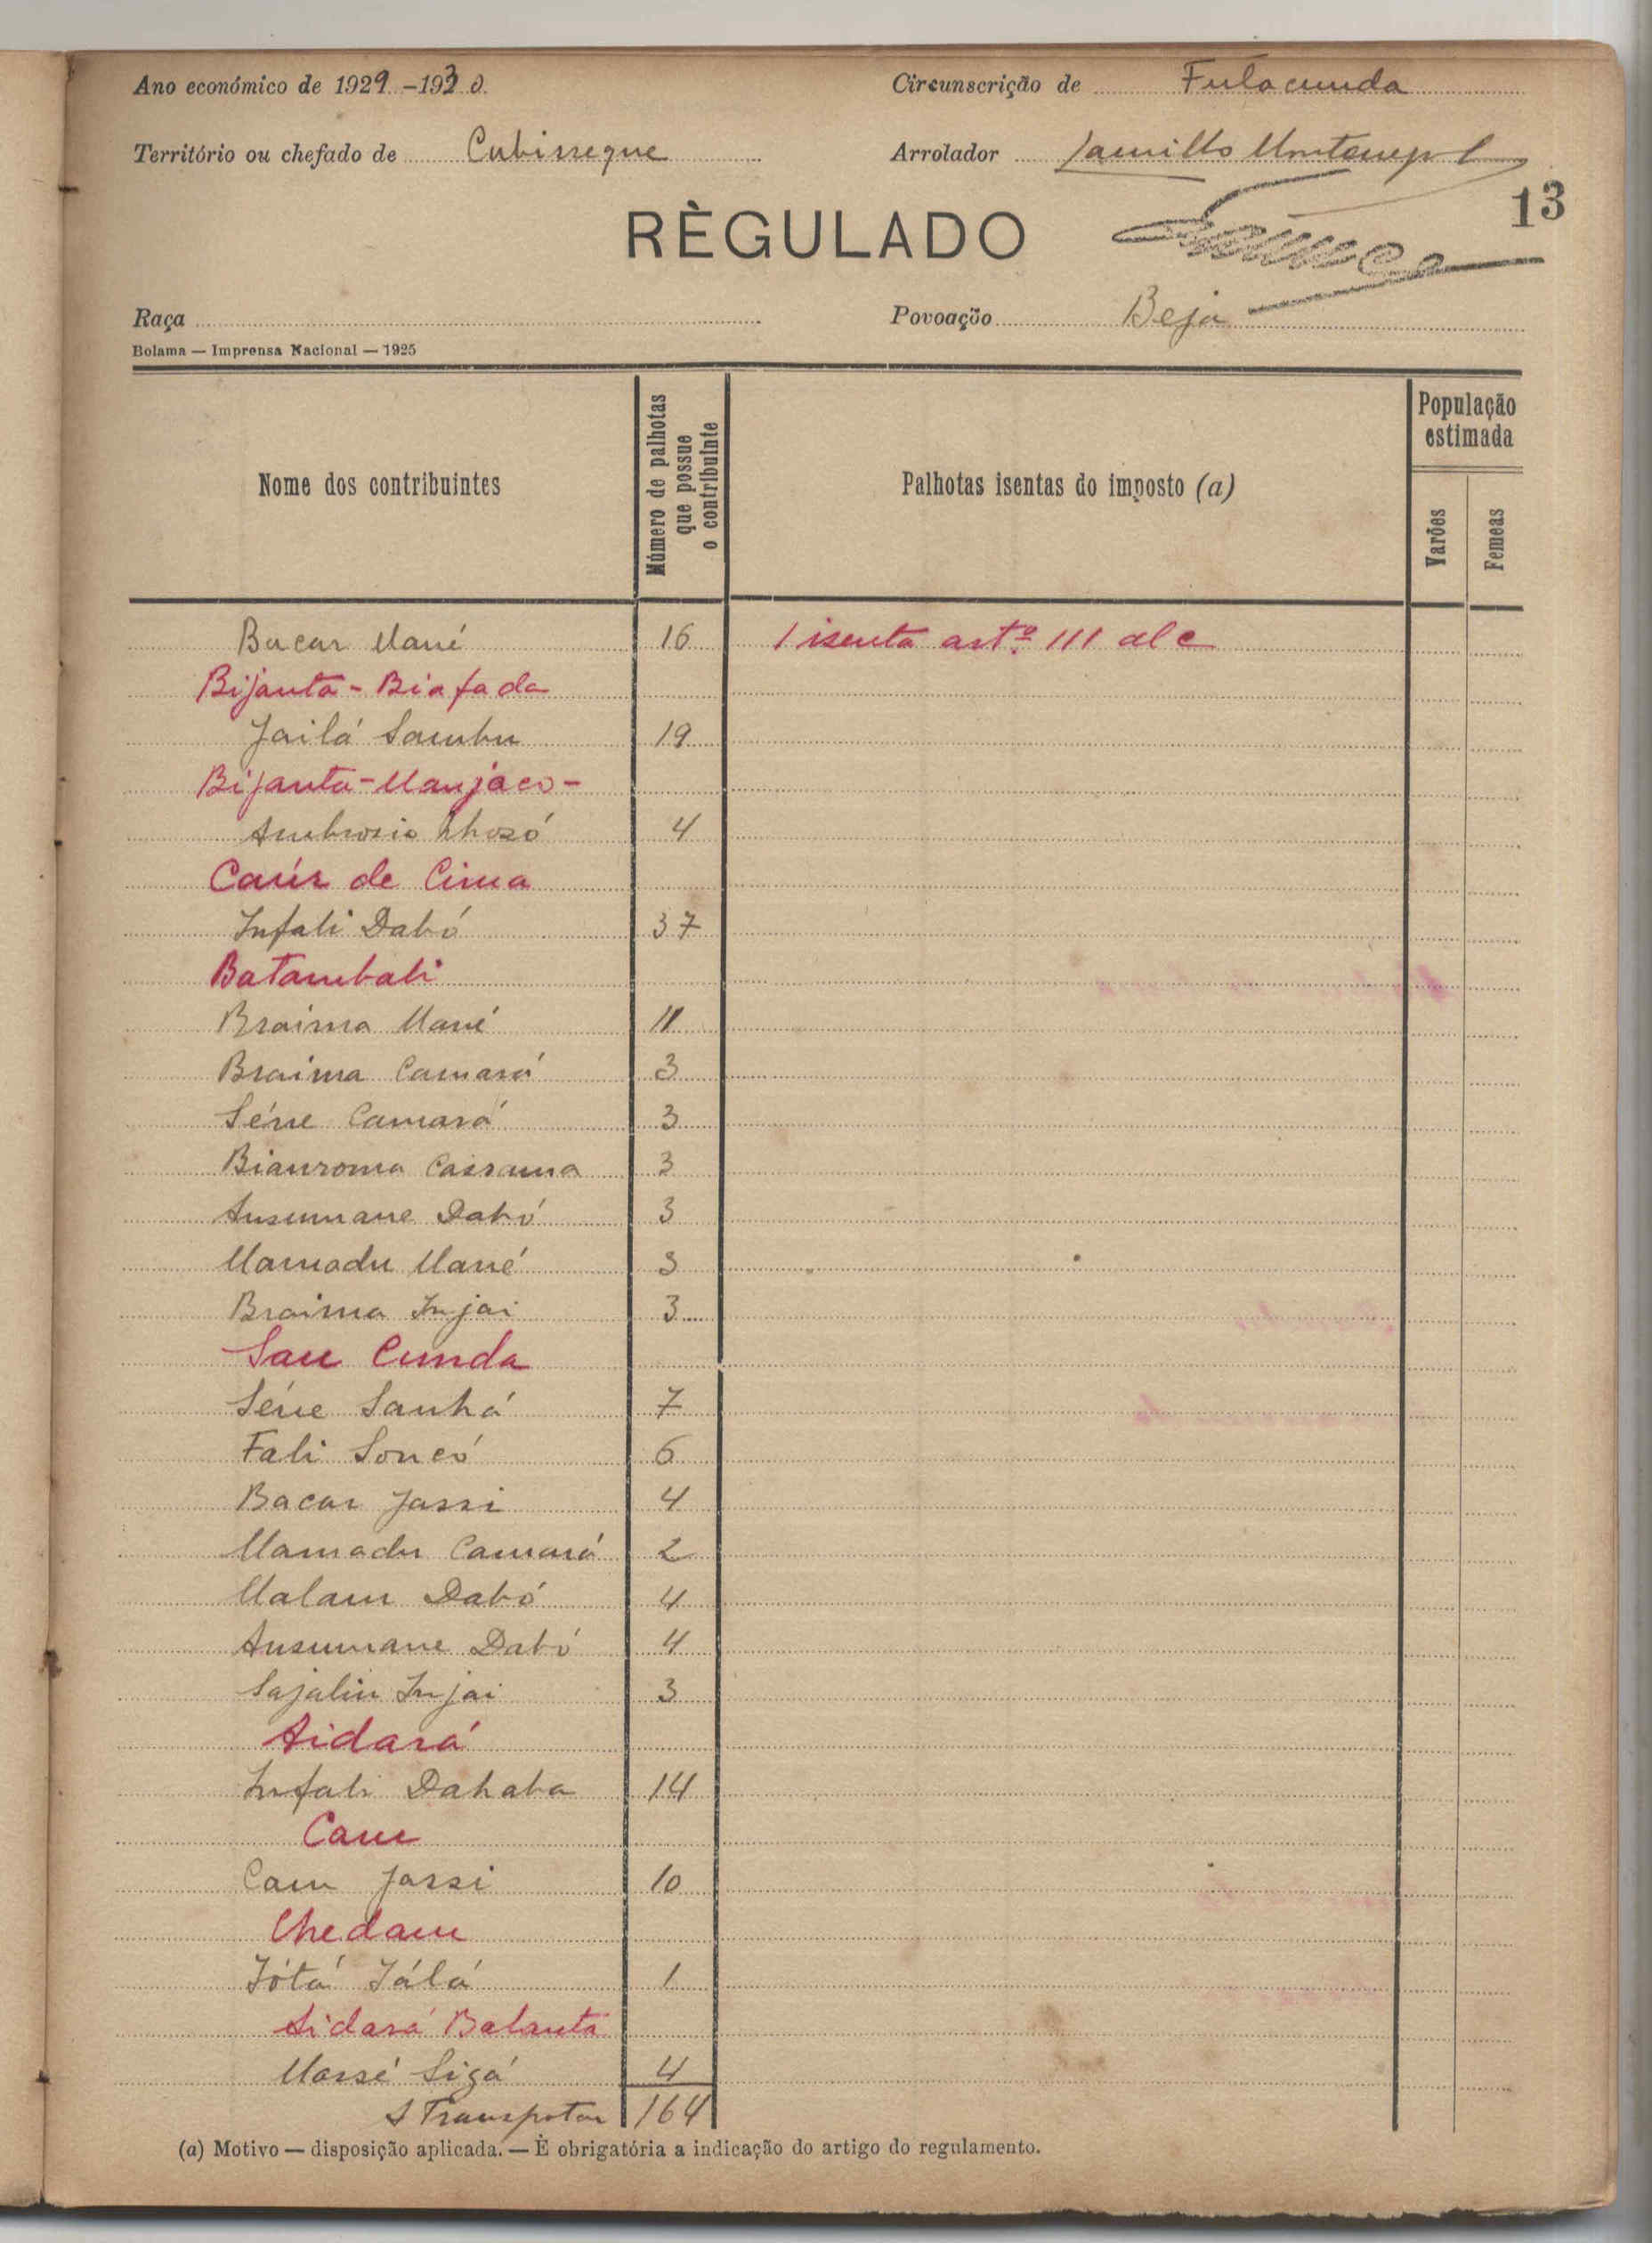 Ano económico de 1929-1930
Circunscrição de Fulacunda
Território ou chefado de Cubisseque
Arrolador
13
RÈGULADO
Raça
Povoação Beja
Bolama — Imprensa Nacional — 1925
Nome dos contribuintes
Número de palhotas que possue o contribuinte
Palhotas isentas do imposto (a)
População estimada
Varões
Femeas
Bacar Mané 16 1 isenta artº. 111 al c
Bijanta - Biafada
Jailá Sambu 19
Bijanta - Manjaco -
Ambrosio 4
Caúr de Cima
Infali Dabó 37
Batambali
Braima Mané 11
Braima Camará 3
Séne Camará 3
Cassama 3
Ansumane Dabó 3
Mamadu Mané 3
Braima Injai 3
San Cunda
Séne Sanhá 7
Fali Soncó 6
Bacar Jassi 4
Mamadu Camará 2
Malam Dabó 4
Ansumane Dabó 4
Sajaliu Injai 3
Aidará
Infali Dahaba 14
Cam
Cam Jassi 10
Chedam
Jótá Jálá 1
Aidará Balanta
Massé Sigá 4
A Transpotar 164
(a) Motivo — disposição aplicada. — È obrigatória a indicação do artigo do regulamento.